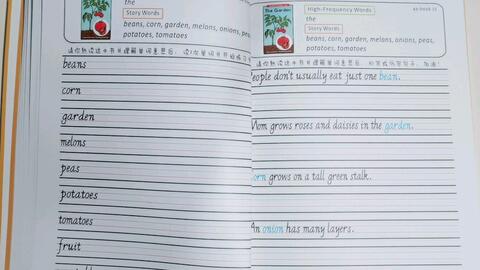 the
Story Words
beans, corn, garden, melons, onions, peas,
potatoes, tomatoes
beans
corn
garden
melons
peas
potatoes
tomatoes
fruit
The Garden
High-Frequency Words
the
Story Words
beans, corn, garden, melons, onions, peas,
potatoes, tomatoes
People don't usually eat just one bean.
Mom grows roses and daisies in the garden.
Corn grows on a tall green stalk.
An onion has many layers.